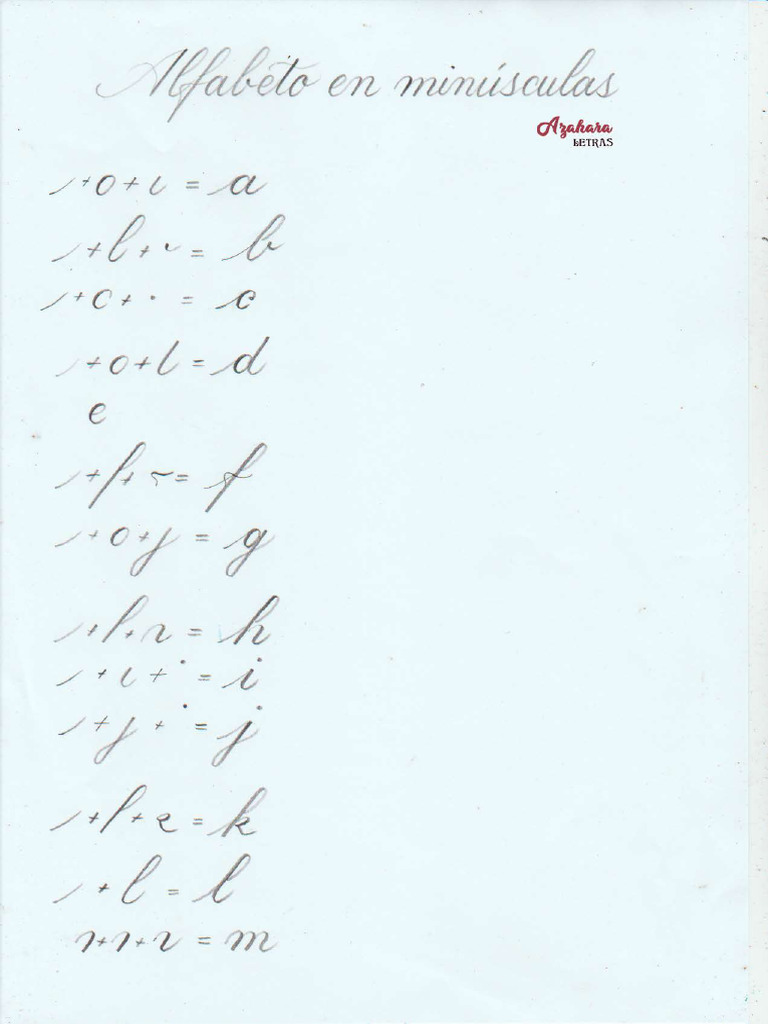 Alfabeto en minúsculas
Azahara
LETRAS
/+o+ι = a
/+l+ ˘ = b
/+c+ · = c
/+o+l = d
e
/+ſ+ ~ = f
/+o+ȷ = g
/+l+ı = h
/+ι+ · = i
/+ȷ + · = j
/+l+ɛ = k
/+l = l
ı+ı+ı = m